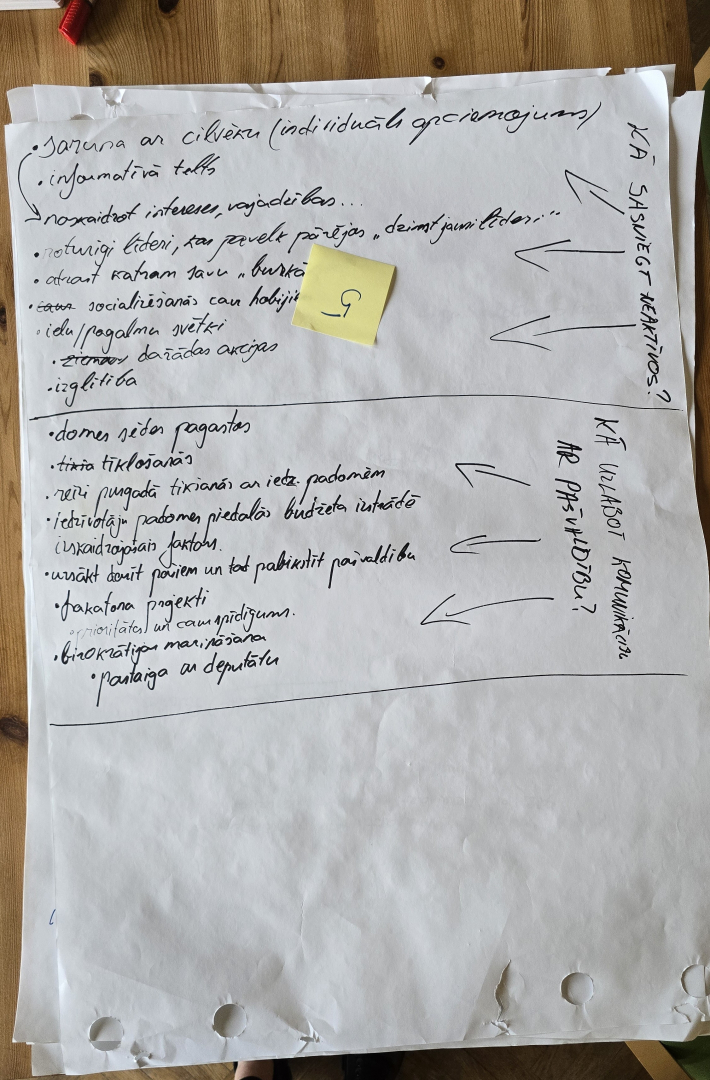 KĀ SASNIEGT NEAKTĪVOS?
• saruna ar cilvēku (individuāls apciemojums)
• informatīvā telts
noskaidrot intereses, vajadzības...
• noturīgi līderi, kas pavelk pārējos „dzimt jauni līderi"
• atrast katram savu „burkā
• socializēšanās caur hobijie
• ielu/pagalmu svētki
• dažādas akcijas
• izglītība
G
KĀ UZLABOT KOMUNIKĀCIJU
AR PAŠVALDĪBU?
• domes sēdes pagastos
• tīklošanās
• reizi pusgadā tikšanās ar iedz. padomēm
• iedzīvotāju padomes piedalās budžeta izstrādē
izskaidrojošais faktors.
• uzsākt darīt pašiem un tad pabikstīt pašvaldību
• hakatona projekti
• prioritātes un caurspīdīgums.
• birokrātijas mazināšana
• pastaiga ar deputātu